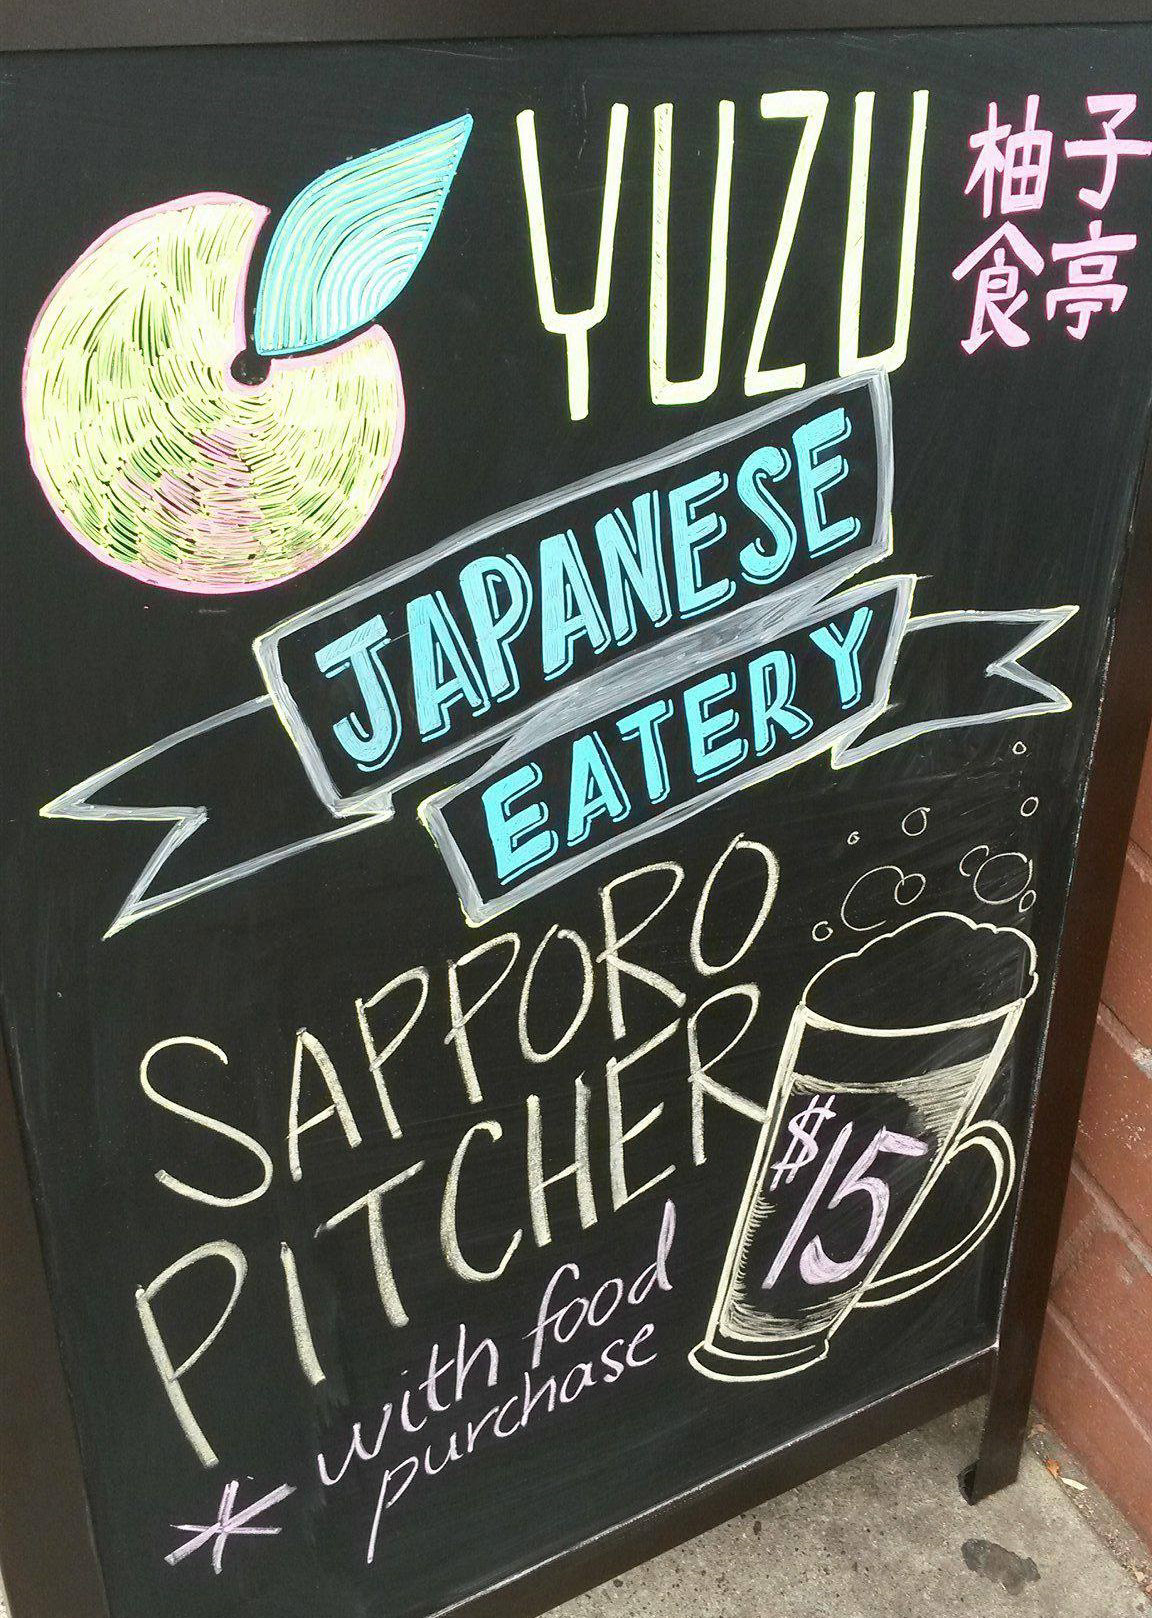 YUZU
柚子
食亭
JAPANESE
EATERY
SAPPORO
PITCHER
$15
*with food
purchase